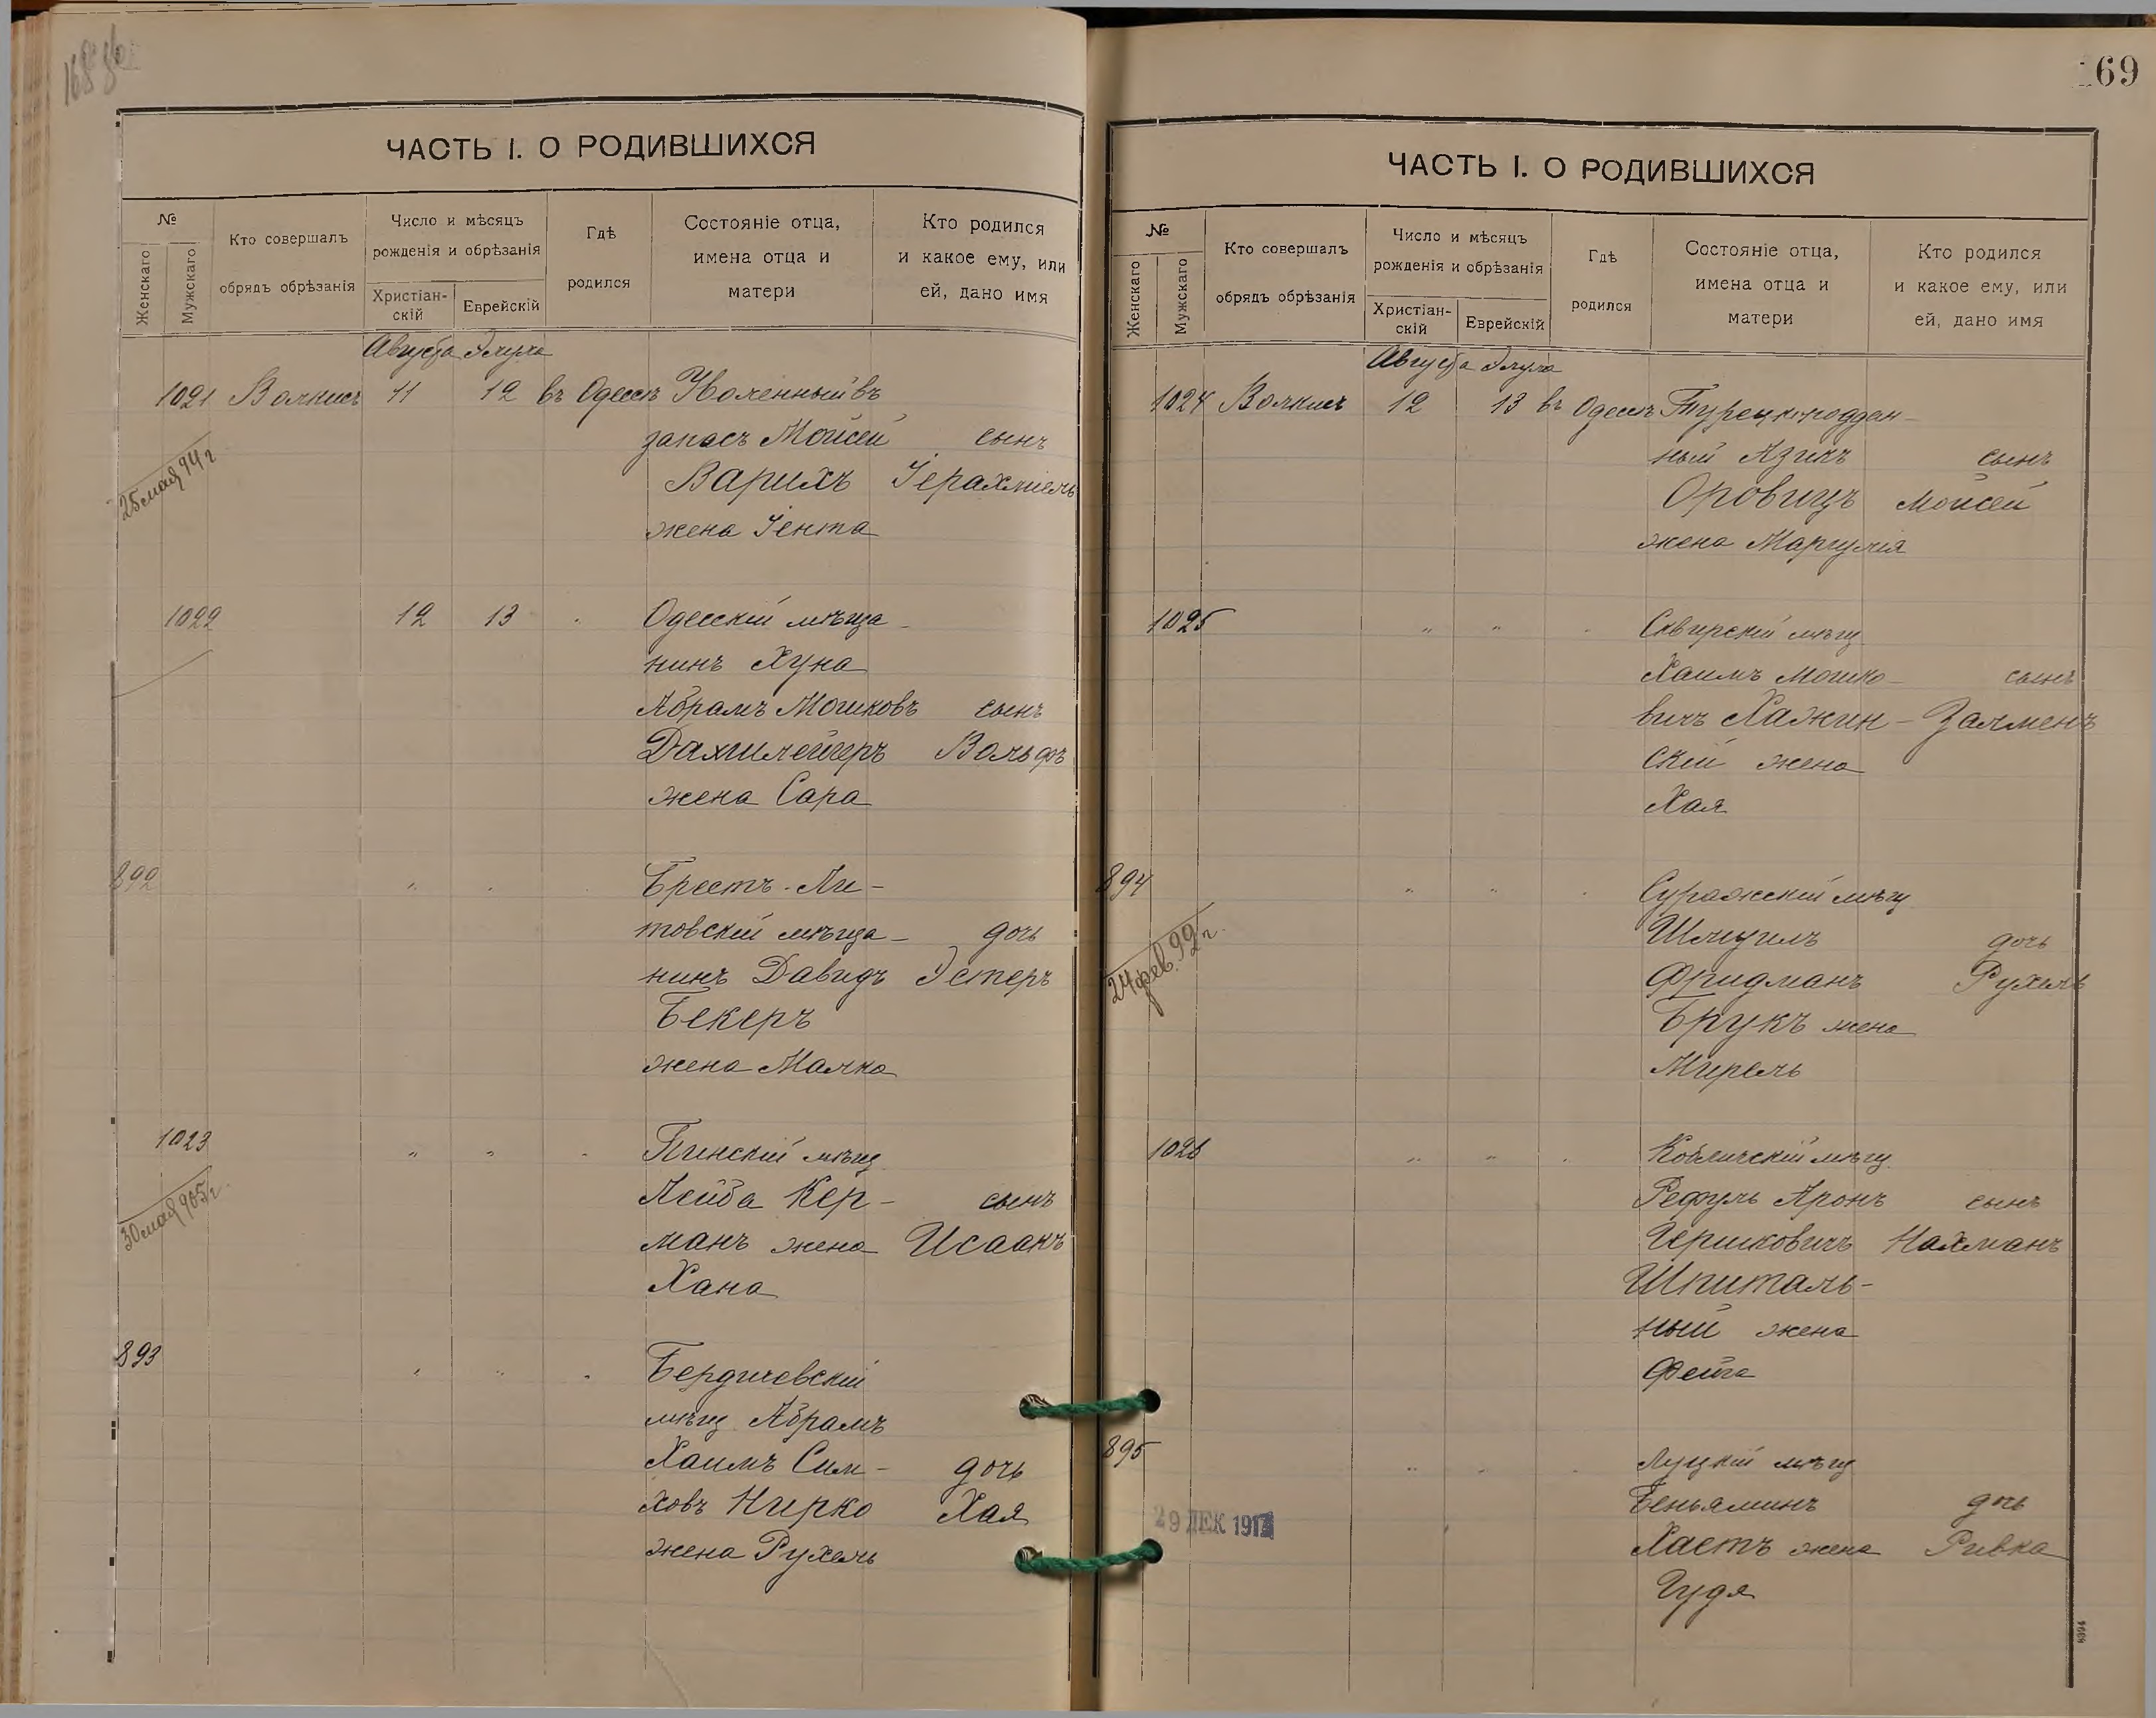 168 об
ЧАСТЬ I. О РОДИВШИХСЯ
№
Женскаго
Мужскаго
Кто совершалъ
обрядъ обрѣзанія
Число и мѣсяцъ
рожденія и обрѣзанія
Христіан-
скій
Еврейскій
Гдѣ
родился
Состояніе отца,
имена отца и
матери
Кто родился
и какое ему, или
ей, дано имя
Августа Элула
1021 11 12 въ Одессѣ Уволенный въ
запасъ Мойсей сынъ
25 мая 94 г
Варихъ Іерахміель
жена Іента
1022 12 13 Одесскій мѣща-
нинъ Хуна
Абрамъ Мошковъ сынъ
Вольфъ
жена Сара
892 " " Брестъ-Ли-
товскій мѣща- дочь
нинъ Давидъ Эстеръ
Бекеръ
жена Малка
1023 " " Пинскій мѣщ.
30 мая 905 г.
Лейба Кер- сынъ
манъ жена Исаакъ
Хана
893 " " Бердичевскій
мѣщ. Абрамъ
Хаимъ Сим- дочь
ховъ Нирко Хая
жена Рухель
169
ЧАСТЬ I. О РОДИВШИХСЯ
№
Женскаго
Мужскаго
Кто совершалъ
обрядъ обрѣзанія
Число и мѣсяцъ
рожденія и обрѣзанія
Христіан-
скій
Еврейскій
Гдѣ
родился
Состояніе отца,
имена отца и
матери
Кто родился
и какое ему, или
ей, дано имя
Августа Элула
1024 12 13 въ Одессѣ Турецко-поддан-
ный Азикъ сынъ
Оровицъ Мойсей
жена Маргулія
1025 " " Сквирскій мѣщ
Хаимъ Мошко- сынъ
вичъ Хажин- Залменъ
скій жена
Хая
894 " " Суражскій мѣщ
24 фев. 99 г.
Шмуилъ дочь
Фридманъ Рухель
Брукъ жена
Мирель
1026 " " мѣщ.
Аронъ сынъ
Гершковичъ Нахманъ
Шпиталь-
ный жена
Фейга
895 " " Луцкій мѣщ
Беньяминъ дочь
29 ДЕК 191
Хастъ жена Ривка
Гудя